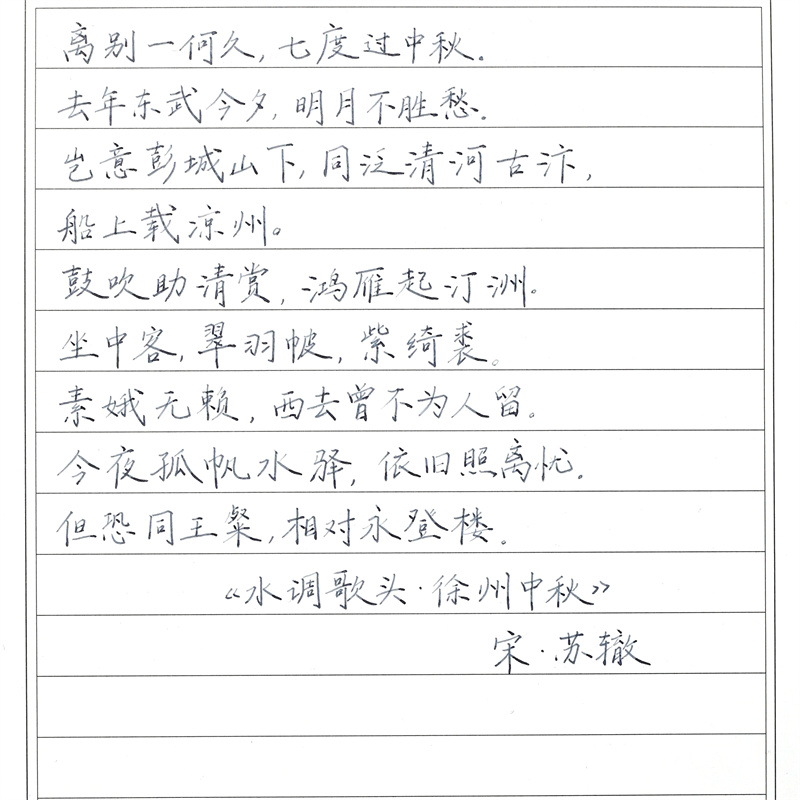 离别一何久,七度过中秋。
去年东武今夕,明月不胜愁。
岂意彭城山下,同泛清河古汴,
船上载凉州。
鼓吹助清赏,鸿雁起汀洲。
坐中客,翠羽帔,紫绮裘。
素娥无赖,西去曾不为人留。
今夜孤帆水驿,依旧照离忧。
但恐同王粲,相对永登楼。
《水调歌头·徐州中秋》
宋·苏辙